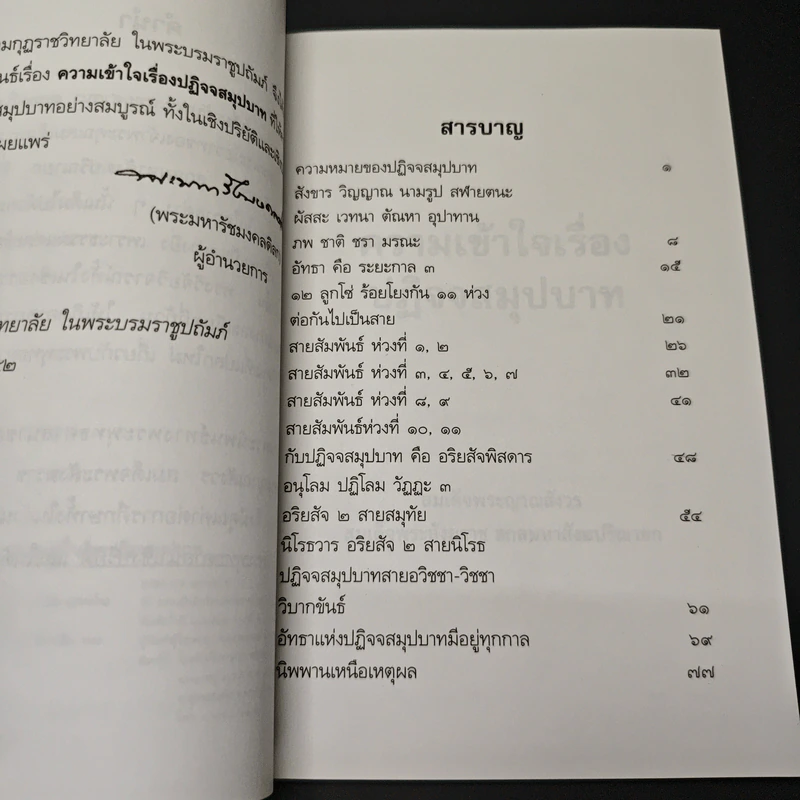 มกุฏราชวิทยาลัย ในพระบรมราชูปถัมภ์
ความเข้าใจเรื่องปฏิจจสมุปบาท
อย่างสมบูรณ์ ทั้งในเชิงปริยัติและ
ผยแพร่
(พระมหารัชมงคลดิลก)
ผู้อำนวยการ
ทยาลัย ในพระบรมราชูปถัมภ์
สารบาญ
ความหมายของปฏิจจสมุปบาท ๑
สังขาร วิญญาณ นามรูป สฬายตนะ
ผัสสะ เวทนา ตัณหา อุปาทาน
ภพ ชาติ ชรา มรณะ ๘
อัทธา คือ ระยะกาล ๓ ๑๕
๑๒ ลูกโซ่ ร้อยโยงกัน ๑๑ ห่วง
ต่อกันไปเป็นสาย ๒๑
สายสัมพันธ์ ห่วงที่ ๑, ๒ ๒๖
สายสัมพันธ์ ห่วงที่ ๓, ๔, ๕, ๖, ๗ ๓๒
สายสัมพันธ์ ห่วงที่ ๘, ๙ ๔๑
สายสัมพันธ์ห่วงที่ ๑๐, ๑๑
กับปฏิจจสมุปบาท คือ อริยสัจพิสดาร ๔๘
อนุโลม ปฏิโลม วัฏฏะ ๓
อริยสัจ ๒ สายสมุทัย ๕๔
นิโรธวาร อริยสัจ ๒ สายนิโรธ
ปฏิจจสมุปบาทสายอวิชชา-วิชชา
วิบากขันธ์ ๖๑
อัทธาแห่งปฏิจจสมุปบาทมีอยู่ทุกกาล ๖๙
นิพพานเหนือเหตุผล ๗๗